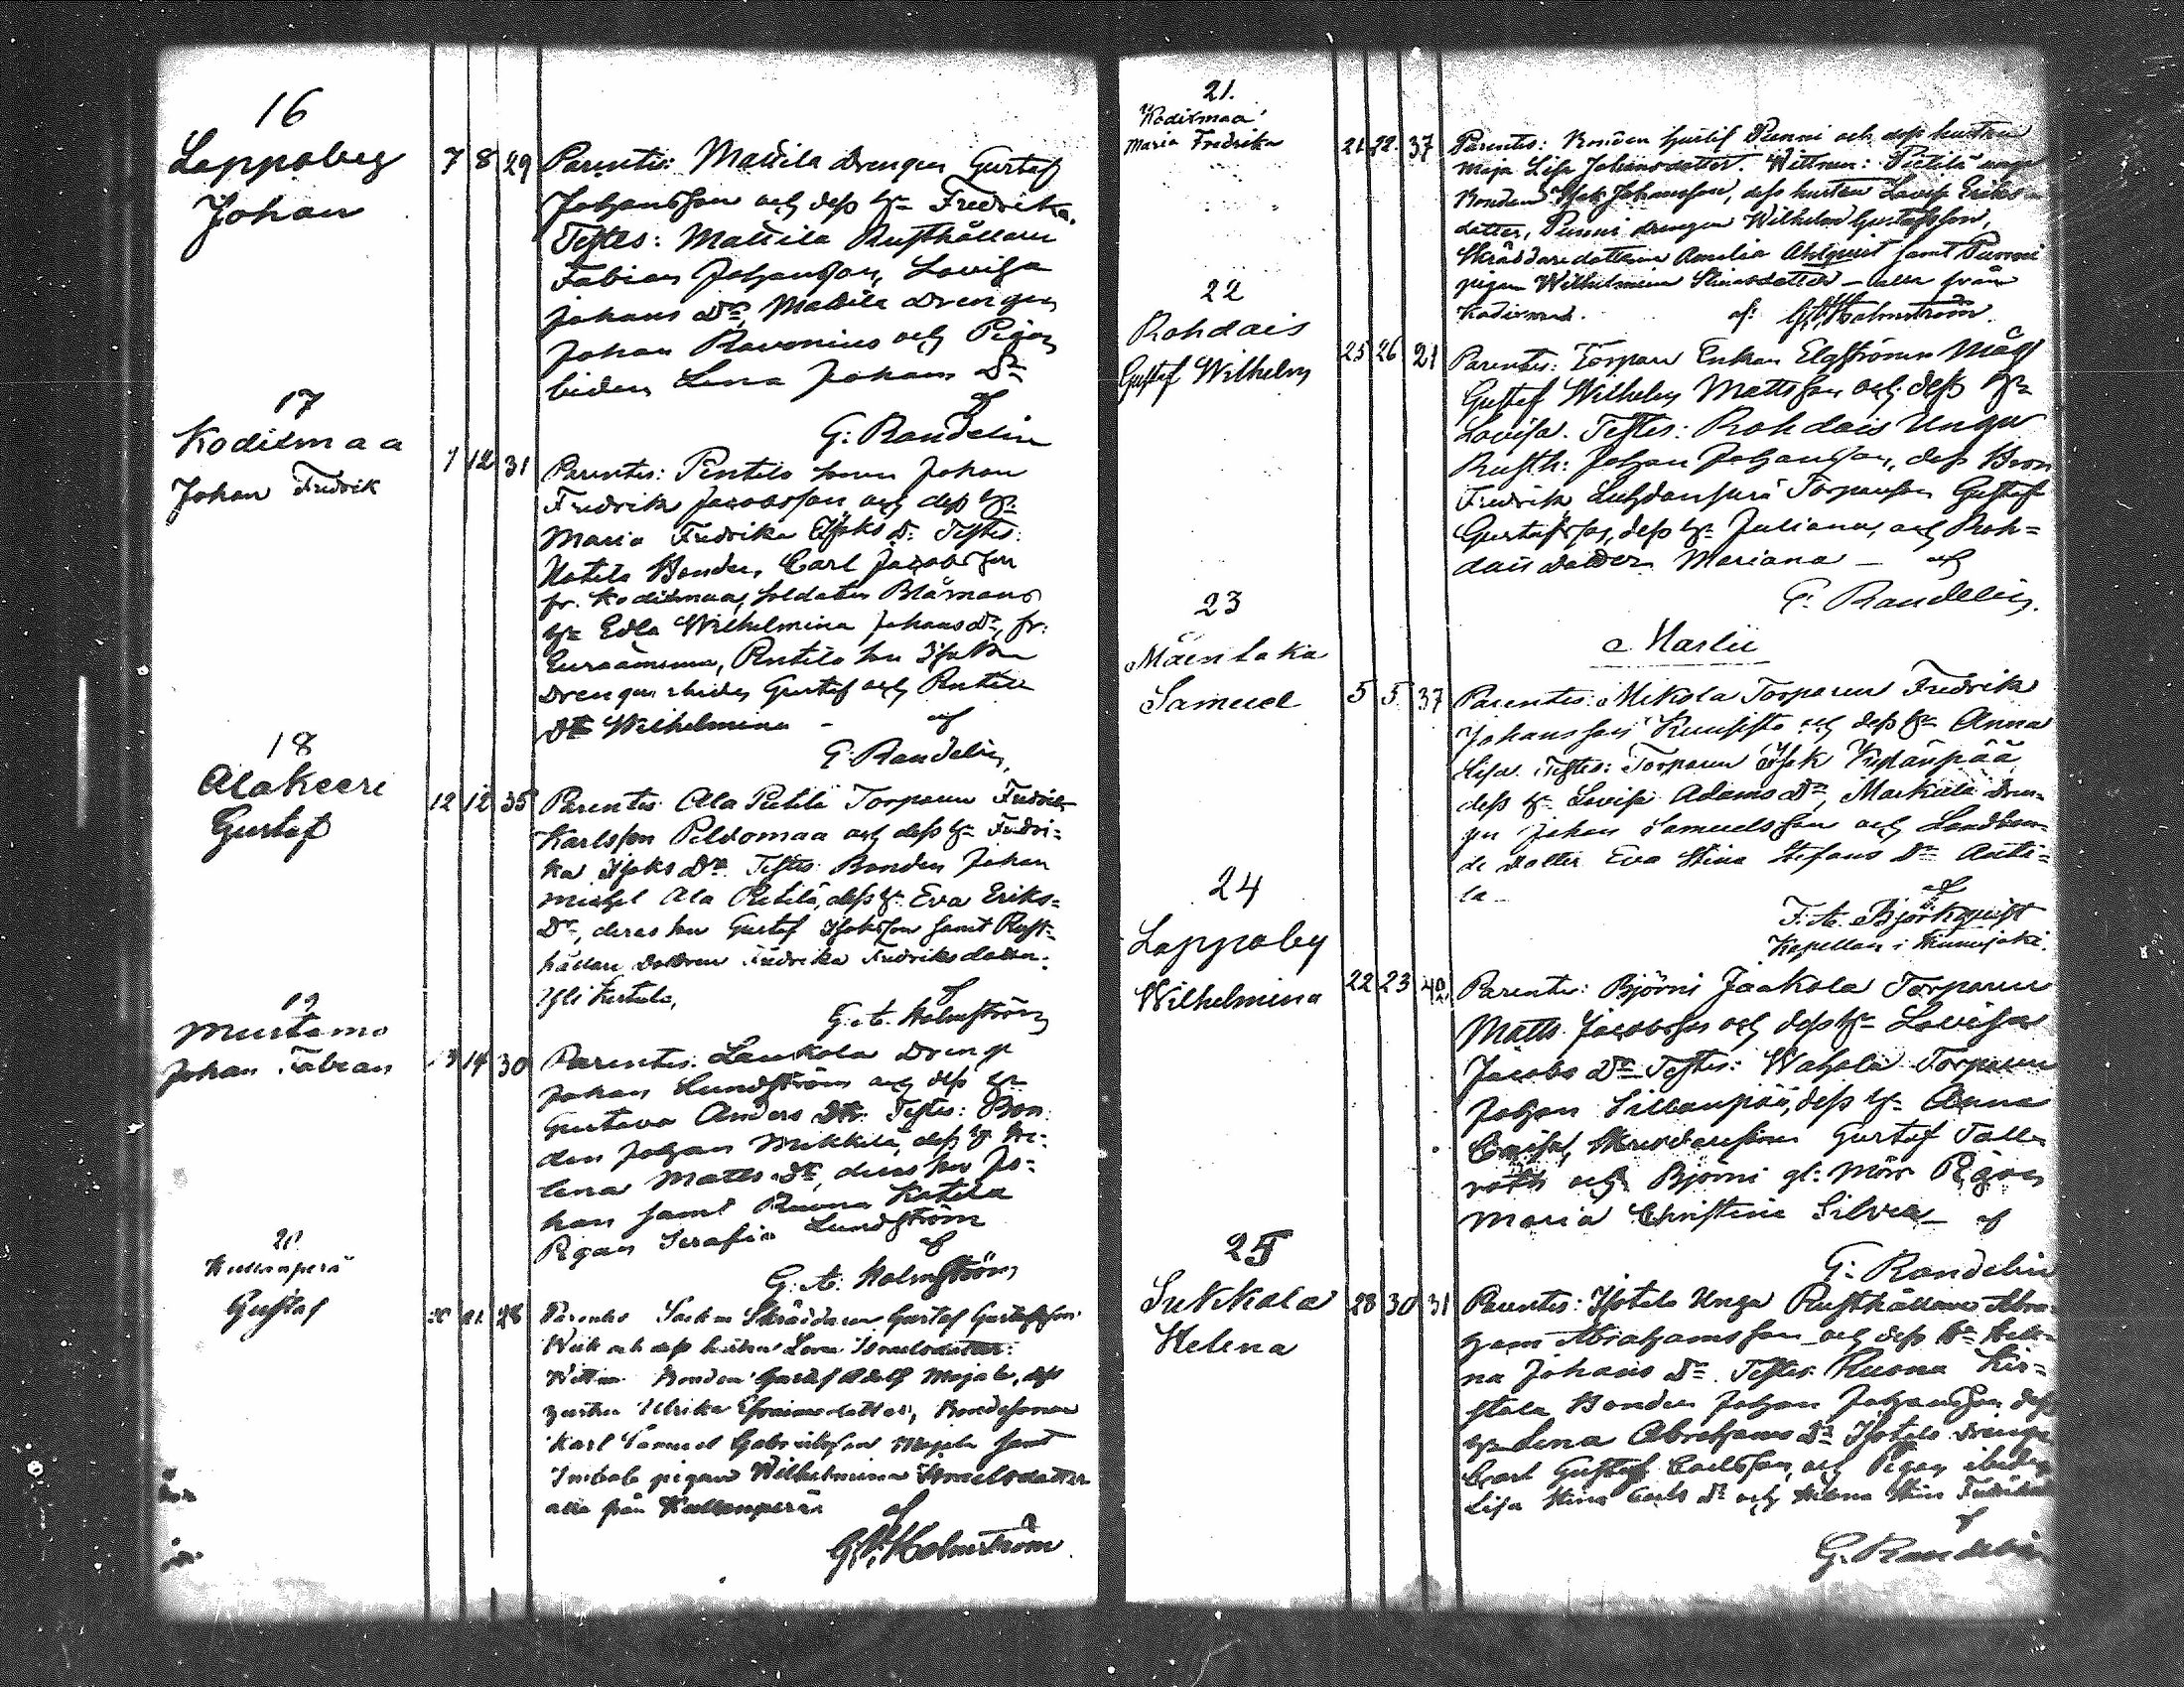 16
Lappoby
Johan
7 8 29
Parentes: Mattila Drengen Gustaf
Johansson och dess H:u Fredrika.
Testes: Mattila Rusthållaren
Fabian Johansson, Lovisa
Johans D:r, Mattila Drengen
Johan Ravonius och Pigan
ibidem Lena Johans D:r
af
G: Randelin
17
Kodismaa
Johan Fredrik
12 31
Parentes: Pentilo sonen Johan
Fredrik Jacobsson och dess H:u
Maria Fredrika Isaks D: Testes:
Bonden, Carl Jacobsson
fr. Kodismaa, Soldaten Blåmans
H:u Edla Wilhelmina Johans D:r, fr:
Euraåminne, Pentilo
Drengen ibidem Gustaf och
D:r Wilhelmina - af
G: Randelin
18
Alakeeri
Gustaf
12 12 35
Parentes Ala Pietilä Torparen Fredrik
Karlsson Peldomaa och dess H:u Fredri=
ka Isaks D:r. Testes: Bonden Johan
Michel Ala Pietilä, dess H: Eva Eriks=
D:r, deras son Gustaf Isaksson samt Rust=
hållare Dottren Fredrika Fredriksdotter.
af
G. A. Holmström
19
Murtamo
Johan Fabian
13 14 30
Parentes: Laukola Dreng
Johan Lundström och dess H:u
Gustava Anders D:r. Testes: Bon=
den Johan Mikkilä, dess H: He=
lena Matts D:r, deras son Jo=
han samt Ruona Kotila
Pigan Serafia Lundström
af
G. A: Holmström
20
Kullanperä
Gustaf
20 21 28
Parentes Sockne Skräddaren Gustaf Gustafsson
Wiik och dess hustru Lovisa Israelsdotter:
Bonden Gustaf Adolf Majala, dess
hustru Ulrika Efraimsdotter, Bondesonen
Karl Samuel Gabrielsson Majala samt
pigan Wilhelmina Israelsdotter
alla från Kullanperä
af
G. A. Holmström
21.
Kodismaa
Maria Fredrika
21 22 37
Parentes: Bonden Gustaf Punni och dess hustru
Maja Lisa Johansdotter. Wittnen: Pietilä unga
Bonden Isak Johansson, dess hustru Lovisa Eriks=
dotter, Punni drengen Wilhelm Gustafsson,
Skräddaredottren Amalia Ahlqvist samt Punni
pigan Wilhelmina Stinasdotter — alla från
Kodismaa. af: G. A. Holmström.
22
Rohdais
Gustaf Wilhelm
25 26 21
Parentes: Torpare Enkan Elgströms Måg
Gustaf Wilhelm Mattsson och dess H:u
Lovisa. Testes: Rohdais Unga
Rusth: Johan Johansson, dess Bror
Fredrik Torparson Gustaf
Gustafsson, dess H:u Juliana, och Roh=
dais dotter Mariana — af
G: Randelin.
Martii
23
Mäenlaka
Samuel
5 5 37
Parentes: Mikola Torparen Fredrik
Johansson Kuusisto och dess H:u Anna
Lisa. Testes: Torparen Isak
dess H:u Lovisa Adams D:r, Markula Dren=
gen Johan Samuelsson och Landbon=
de dotter Eva Stina Stefans D:r Antti=
la -
af
F. A. Björkqvist
Kapellan i Kiimijoki.
24
Lappoby
Wilhelmina
22 23 40
Parentes: Björni Jaakola Torparen
Matts Jacobsson och dess H:u Lovisa
Jacobs D:r Testes: Wahala Torparen
Johan Sillanpää, dess H:u Anna
Caisa, Gustaf Tall=
roth och Björni gl: Mör Pigan
Maria Christina Silvia — af
G: Randelin
25
Sukkola
Helena
28 30 31
Parentes: Isotalo Unga Rusthållaren Abra=
ham Abrahamsson och dess H:u Hele=
na Johans D:r Testes: Ruona Kir=
stala Bonden Johan Johansson dess
H:u Lena Abrahams D:r Isotalo Drenge
Carl Gustaf Carlsson, och Pigan ibidem
Lisa Stina Carls D:r och Helena Stina
af
G. Randelin